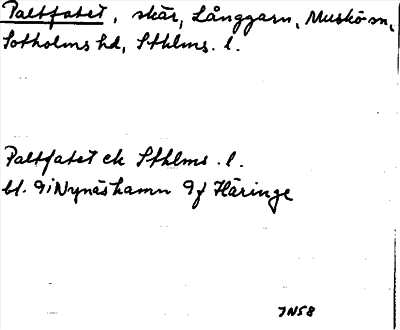 Paltfatet, skär, Långgarn, Muskö sn,
Sotholms hd, Sthlms. l.
Paltfatet ek Sthlms. l.
bl. 9i Nynäshamn 9f Häringe
JN58